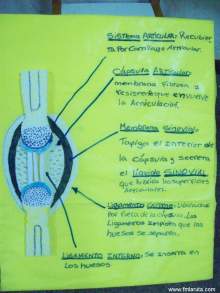 SISTEMA ARTICULAR: Recubier
ta por Cartilago Articular.
CÁPSULA ARTICULAR:
membrana Fibrosa y
Resistente que envuelve
la Articulación.
Membrana SINOVIAL:
Tapiza el Interior de
la Cápsula y secreta
el Líquido SINOVIAL
que lubrica las superficies
Articulares.
LIGAMENTO
por fuera de la cápsula. Los
Ligamentos impiden que los
huesos se separen.
LIGAMENTO INTERNO: Se inserta en
Los huesos
www.fmlaruta.com